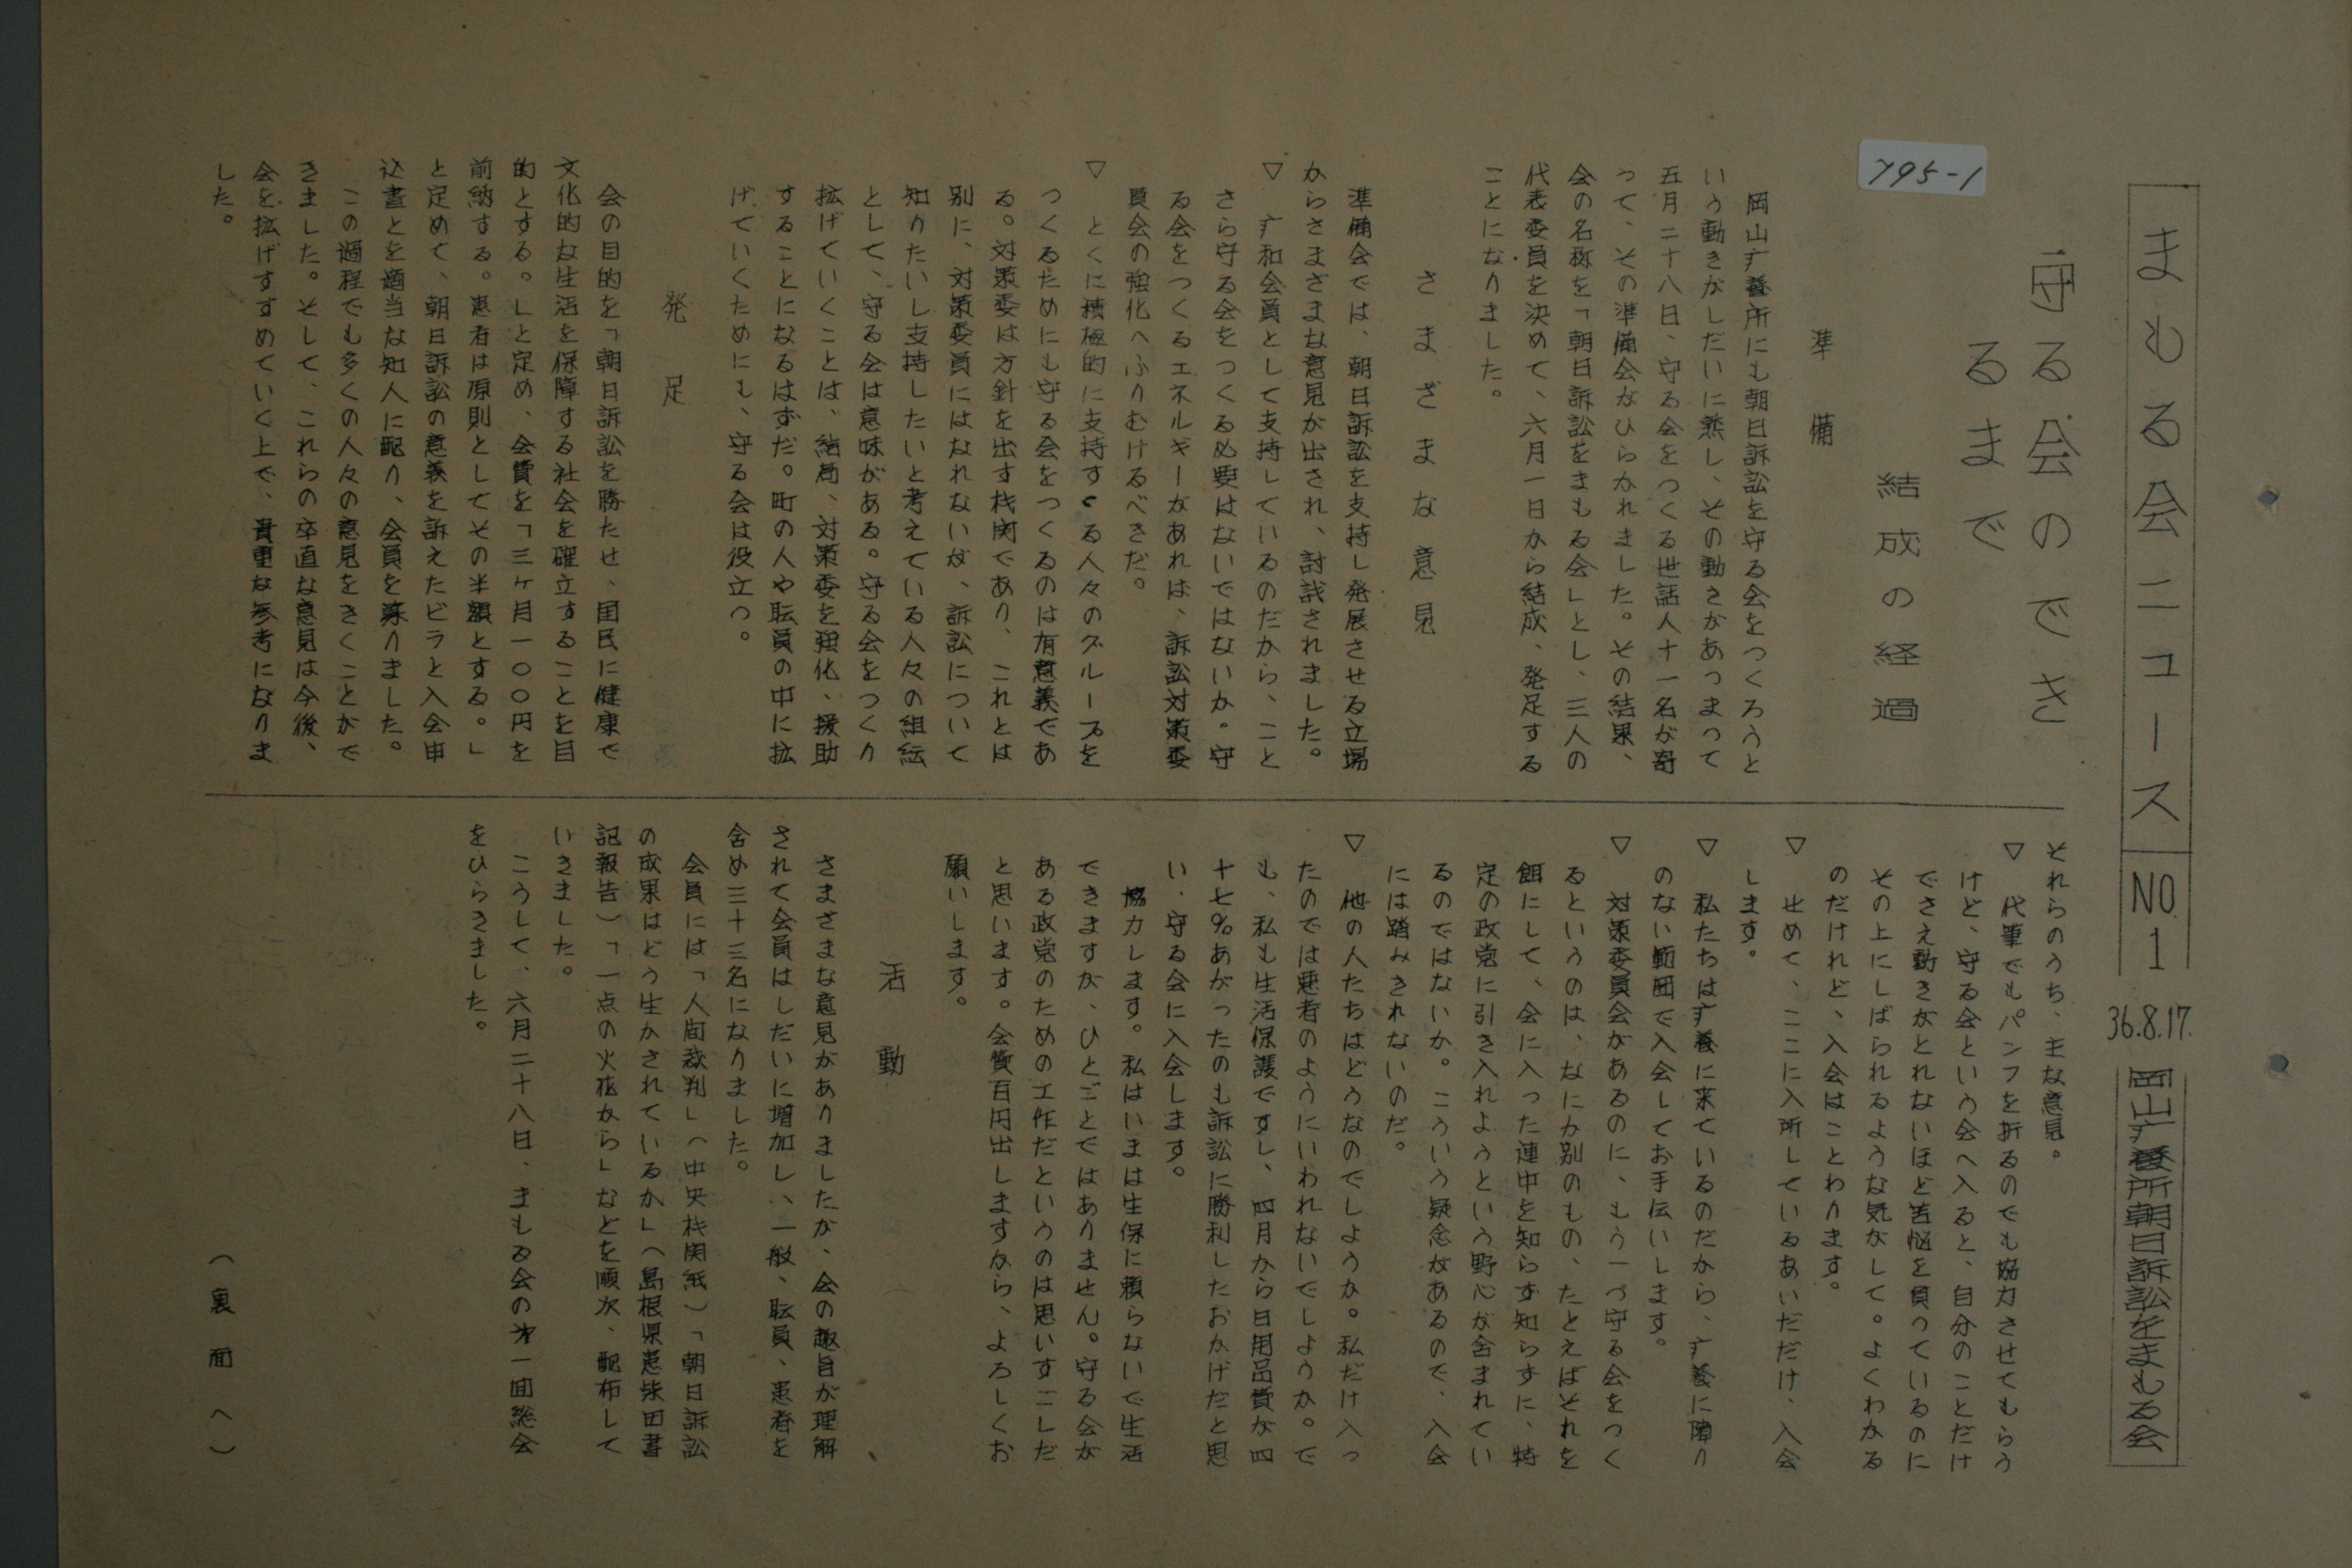 まもる会ニュース NO 1 36.8.17. 岡山疒養所朝日訴訟をまもる会
795-1
守る会のでき
るまで
結成の経過
準備
岡山疒養所にも朝日訴訟を守る会をつくろうと
いう動きがしだいに熟し、その動きがあつまって
五月二十八日、守る会をつくる世話人十一名が寄
って、その準備会がひらかれました。その結果、
会の名称を「朝日訴訟をまもる会」とし、三人の
代表委員を決めて、六月一日から結成、発足する
ことになりました。
さまざまな意見
準備会では、朝日訴訟を支持し発展させる立場
からさまざまな意見が出され、討議されました。
▽ 疒和会員として支持しているのだから、こと
さら守る会をつくる必要はないではないか。守
る会をつくるエネルギーがあれは、訴訟対策委
員会の強化へふりむけるべきだ。
▽ とくに積極的に支持すくる人々のグループを
つくるためにも守る会をつくるのは有意義であ
る。対策委は方針を出す机関であり、これとは
別に、対策委員にはなれないが、訴訟について
知りたいし支持したいと考えている人々の組織
として、守る会は意味がある。守る会をつくり
拡げていくことは、結局、対策委を強化、援助
することになるはずだ。町の人や転員の中に拡
げていくためにも、守る会は役立つ。
発足
会の目的を「朝日訴訟を勝たせ、国民に健康で
文化的な生活を保障する社会を確立することを目
的とする。」と定め、会費を「三ヶ月一〇〇円を
前納する。患者は原則としてその半額とする。」
と定めて、朝日訴訟の意義を訴えたビラと入会申
込書とを適当な知人に配り、会員を募りました。
この過程でも多くの人々の意見をきくことがで
きました。そして、これらの卒直な意見は今後、
会を拡げすすめていく上で、貴重な参考になりま
した。
それらのうち、主な意見。
▽ 代筆でもパンフを折るのでも協力させてもらう
けど、守る会という会へ入ると、自分のことだけ
でさえ動きがとれないほど苦悩を負っているのに
その上にしばられるような気がして。よくわかる
のだけれど、入会はことわります。
▽ せめて、ここに入所しているあいだだけ、入会
します。
▽ 私たちは疒養に来ているのだから、疒養に障り
のない範囲で入会してお手伝いします。
▽ 対策委員会があるのに、もう一つ守る会をつく
るというのは、なにか別のもの、たとえばそれを
餌にして、会に入った連中を知らず知らずに、特
定の政党に引き入れようという野心が含まれてい
るのではないか。こういう疑念があるので、入会
には踏みきれないのだ。
▽ 他の人たちはどうなのでしようか。私だけ入っ
たのでは悪者のようにいわれないでしようか。で
も、私も生活保護ですし、四月から日用品費が四
十七%あがったのも訴訟に勝利したおかげだと思
い、守る会に入会します。
協力します。私はいまは生保に頼らないで生活
できますが、ひとごとではありません。守る会が
ある政党のための工作だというのは思いすごしだ
と思います。会費百円出しますから、よろしくお
願いします。
活動
さまざまな意見がありましたが、会の趣旨が理解
されて会員はしだいに増加し、一般、転員、患者を
含め三十三名になりました。
会員には「人間裁判」(中央机関紙)「朝日訴訟
の成果はどう生かされているか」(島根県患柴田書
記報告)「一点の火花から」などを順次、配布して
いきました。
こうして、六月二十八日、まもる会の才一回総会
をひらきました。
(裏面へ)